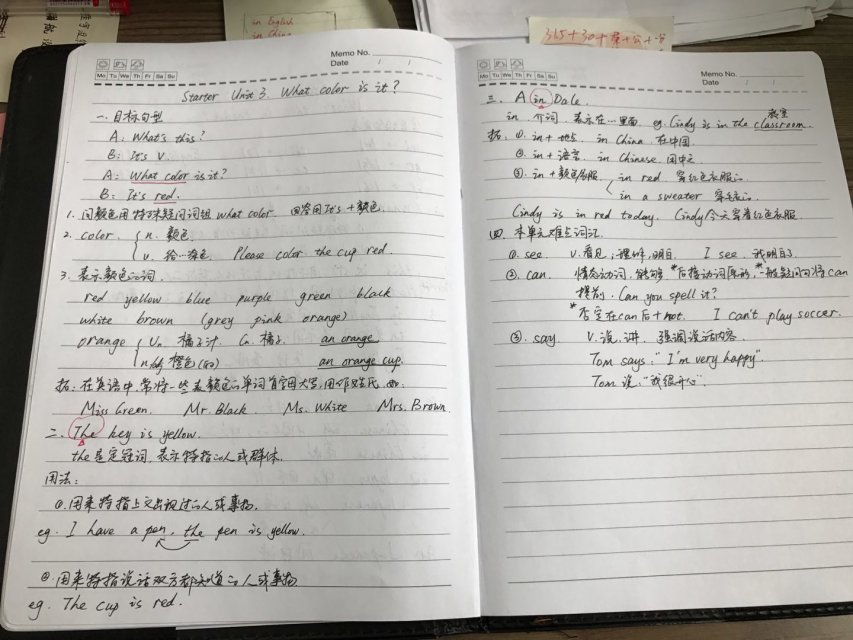 in English
in China
315+30+
Memo No.
Date / /
Mo Tu We Th Fr Sa Su
Starter Unit 3 What color is it?
一. 目标句型
A: What's this?
B: It's V.
A: What color is it?
B: It's red.
1. 问颜色用特殊疑问词组 what color. 回答用It's + 颜色.
2. color. { n. 颜色
v. 给…染色. Please color the cup red.
3. 表示颜色的词.
red yellow blue purple green black
white brown (grey pink orange)
orange { Un. 橘子汁. Cn. 橘子. an orange.
n/adj 橙色(的) an orange cup.
拓: 在英语中, 常将一些表颜色的单词首字母大写, 用作姓氏. 如:
Miss Green. Mr. Black. Ms. White Mrs. Brown.
二. The key is yellow.
the是定冠词, 表示特指的人或群体.
用法:
①.用来特指上文出现过的人或事物.
eg. I have a pen, the pen is yellow.
②.用来特指说话双方都知道的人或事物
eg. The cup is red.
Memo No.
Date / /
Mo Tu We Th Fr Sa Su
三. A in Dale.
in. 介词. 表示在…里面. eg. Cindy is in the classroom.
教室
拓: ①. in + 地点. in China. 在中国.
②. in + 语言. in Chinese. 用中文.
③. in + 颜色/衣服. in red 穿红色衣服的.
in a sweater 穿毛衣的.
Cindy is in red today. Cindy今天穿着红色衣服.
四. 本单元难点词汇.
①. see. v. 看见; 理解, 明白. I see. 我明白了.
②. can. 情态动词, 能够 *后接动词原形, *一般疑问句将can
提前. Can you spell it?
*否定在can后+not. I can't play soccer.
③. say. v. 说, 讲. 强调说话内容.
Tom says: "I'm very happy".
Tom 说: "我很开心".